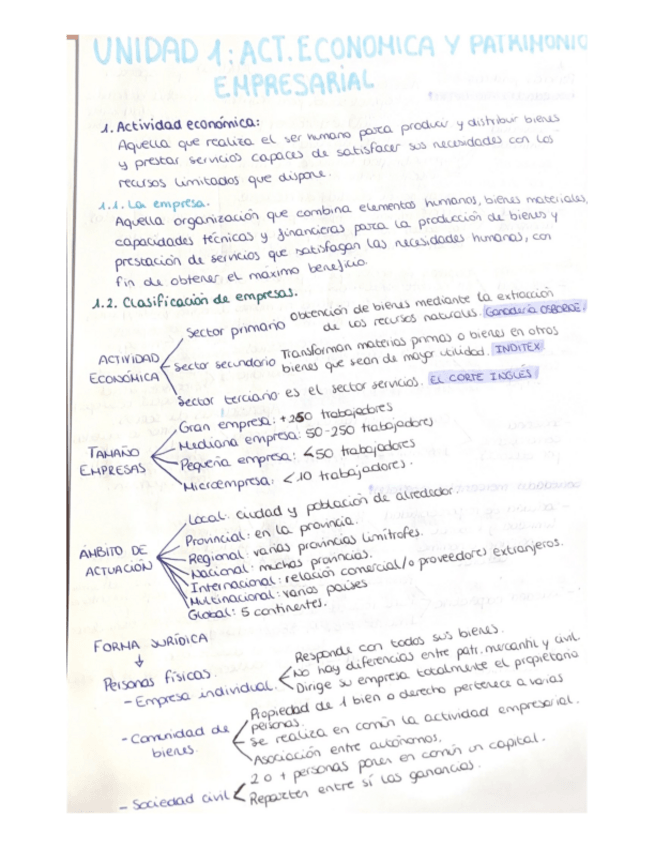 UNIDAD 1: ACT. ECONOMICA Y PATRIMONIO
EMPRESARIAL
1. Actividad económica:
Aquella que realiza el ser humano para producir y distribuir bienes
y prestar servicios capaces de satisfacer sus necesidades con los
recursos limitados que dispone.
1.1. La empresa.
Aquella organización que combina elementos humanos, bienes materiales,
capacidades técnicas y financieras para la producción de bienes y
prestación de servicios que satisfagan las necesidades humanas, con
fin de obtener el máximo beneficio.
1.2. Clasificación de empresas.
ACTIVIDAD ECONÓMICA
Sector primario obtención de bienes mediante la extracción
de los recursos naturales. Ganadería OSBORNE.
Sector secundario Transforman materias primas o bienes en otros
bienes que sean de mayor utilidad. INDITEX
Sector terciario es el sector servicios. EL CORTE INGLÉS.
TAMAÑO EMPRESAS
Gran empresa: +250 trabajadores
Mediana empresa: 50-250 trabajadores
Pequeña empresa: <50 trabajadores
Microempresa: <10 trabajadores.
ÁMBITO DE ACTUACIÓN
Local: ciudad y población de alrededor.
Provincial: en la provincia.
Regional: varias provincias limítrofes.
Nacional: muchas provincias.
Internacional: relación comercial/o proveedores extranjeros.
Multinacional: varios países
Global: 5 continentes.
FORMA JURÍDICA
↓
Personas físicas.
- Empresa individual.
Responde con todos sus bienes.
No hay diferencias entre patr. mercantil y civil.
Dirige su empresa totalmente el propietario
- Comunidad de bienes.
Propiedad de 1 bien o derecho pertenece a varias
personas.
Se realiza en común la actividad empresarial.
Asociación entre autónomos.
- Sociedad civil
2 o + personas ponen en común un capital.
Reparten entre sí las ganancias.